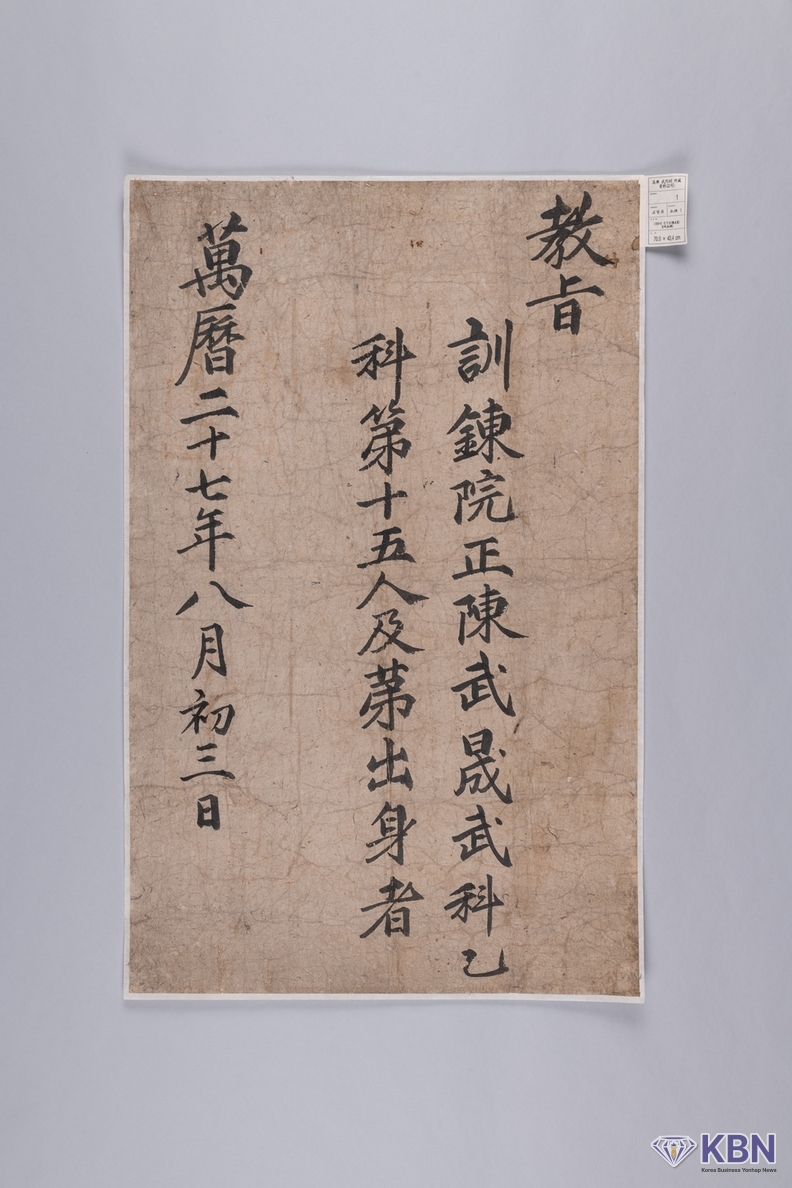 教旨
訓鍊院正陳武晟武科乙
科第十五人及苐出身者
萬曆二十七年八月初三日
1
KBN
Korea Business Yonhap News